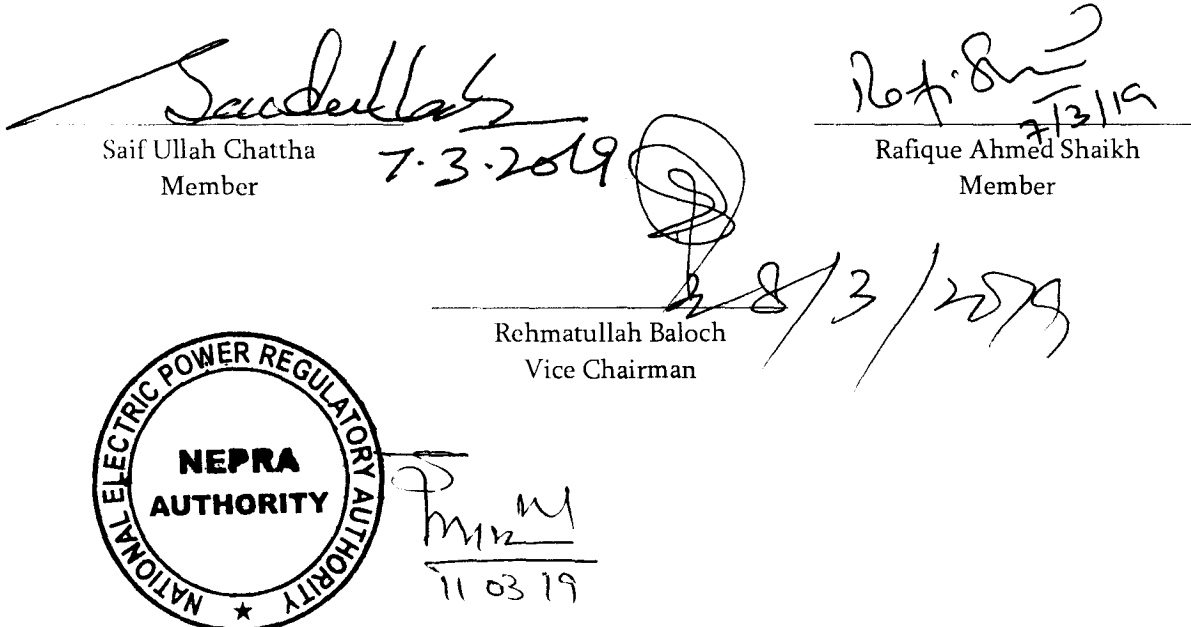 Saif Ullah Chattha
Member
7.3.2019
7/3/19
Rafique Ahmed Shaikh
Member
8/3/2019
Rehmatullah Baloch
Vice Chairman
NATIONAL ELECTRIC POWER REGULATORY AUTHORITY
NEPRA
AUTHORITY
11 03 19